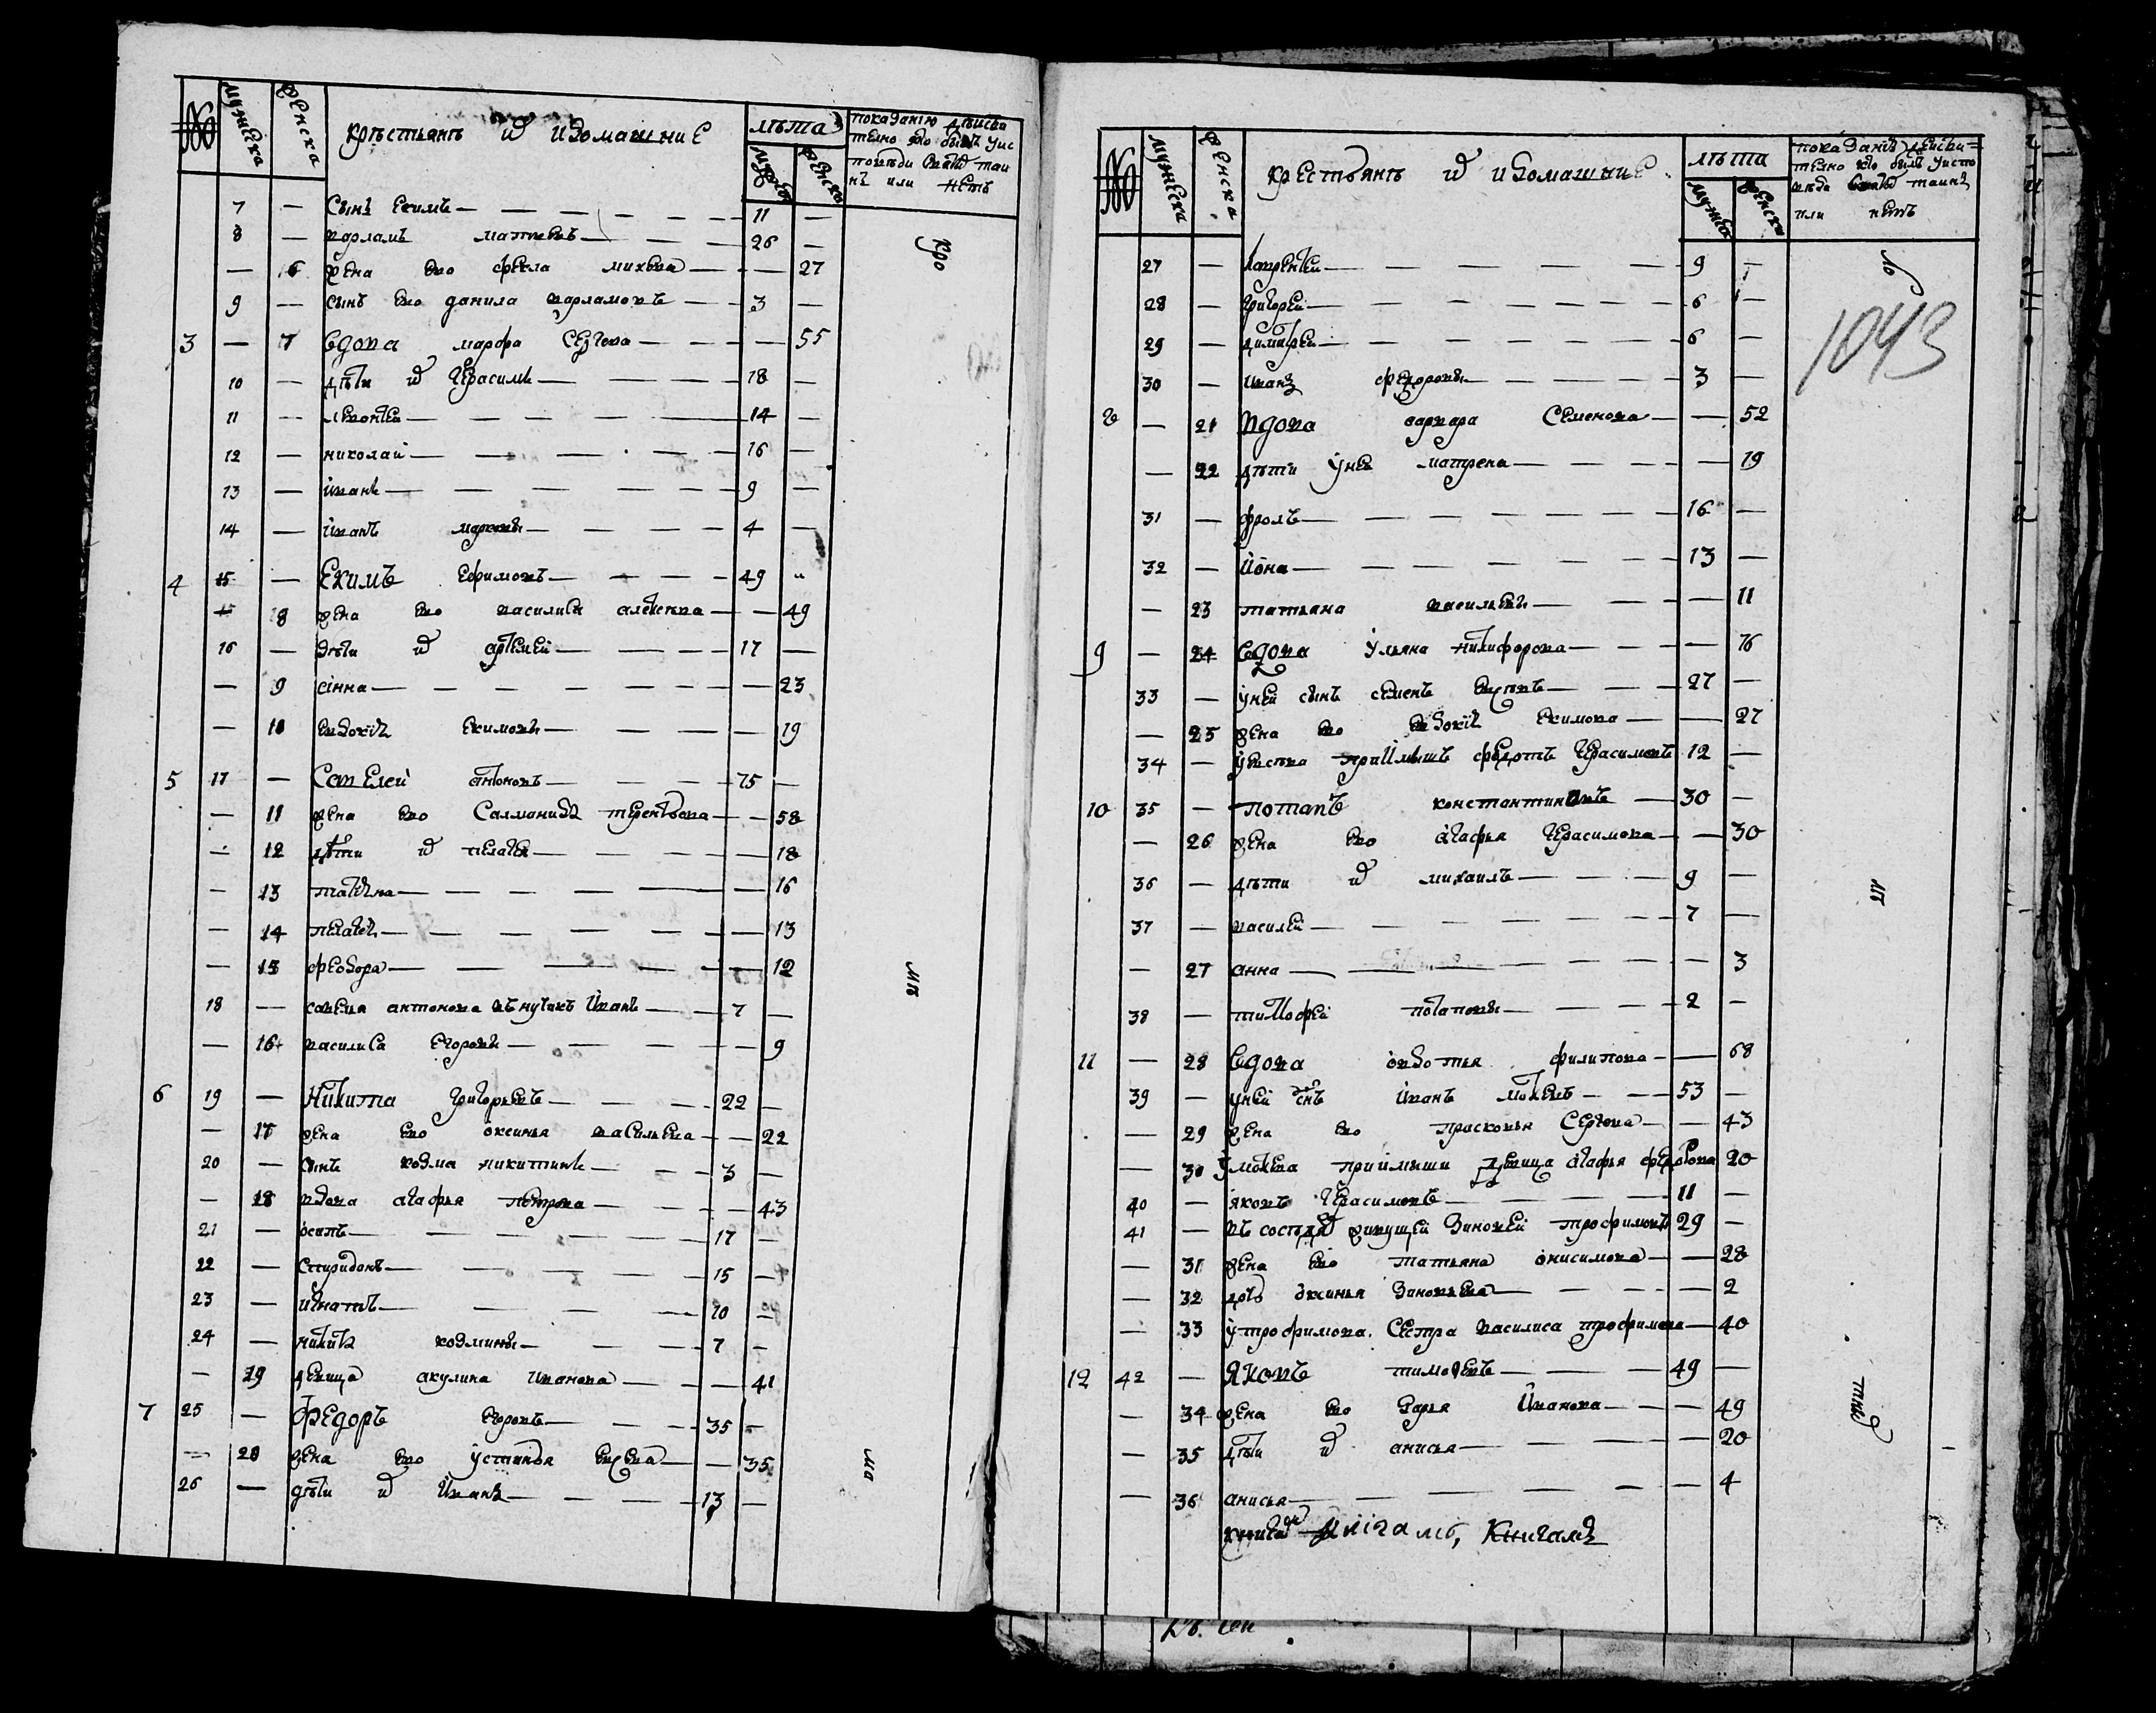 № мужска женска крестьянъ и идомашние лѣта мужска женска показанию дѣиствительно кто былъ уисповѣди и святыхъ таинъ или нетъ
7 — Сынъ Екимъ — 11 —
8 — варламъ матвѣевъ — 26 —
— 6 жена ево фекла михеева — — 27
9 — сынъ ево данила варламовъ — 3 —
3 — 7 вдова марфа Сергеева — — 55
10 — дѣти и герасимъ — 18 —
11 — леонтеи — 14 —
12 — николаи — 16 —
13 — иванъ — 9 —
14 — иванъ марковы — 4 —
4 15 — Екимъ Ефимовъ — 49 "
— 8 жена ево василиса алексеева — — 49
16 — дѣти и артемеи — 17 —
— 9 анна — — 23
— 10 евдокия Екимовы — — 19
5 17 — Савелеи антоновъ — 75 —
— 11 жена ево Саломанида терентьева — — 58
— 12 дѣти и пелагея — — 18
— 13 татьяна — — 16
— 14 пелагея — — 13
— 15 феодора — — 12
18 — савелья антонова внучикъ Иванъ — 7 —
— 16 василиса Егоровы — — 9
6 19 — Никита григорьевъ — 22 —
— 17 жена ево оксинья васильева — — 22
20 — сынъ козма никитинъ — 3 —
— 18 вдова агафья петрова — — 43
21 — осипъ — 17 —
22 — спиридонъ — 15 —
23 — игнатъ — 10 —
24 — никита козмины — 7 —
— 19 девица акулина иванова — — 41
7 25 — Федоръ Егоровъ — 35 —
— 20 жена ево устинья — — 35
26 — дѣти и Иванъ — 13 —
кро
мѣ
ма
№ мужска женска крестьянъ и идомашние лѣта мужска женска показание дѣиствительно кто былъ уисповѣди и святыхъ таинъ или нетъ
27 — лаврентеи — 9 —
28 — григореи — 6 —
29 — димитреи — 6 —
30 — иванъ федоровы — 3 —
8 — 21 вдова варвара Семенова — — 52
— 22 дѣти у нея матрена — — 19
31 — фролъ — 16 —
32 — Иона — 13 —
— 23 татьяна васильевы — — 11
9 — 24 вдова ульяна никифорова — — 76
33 — у неи сынъ семенъ — 27 —
— 25 жена ево евдокия екимова — — 27
34 — приимышъ федотъ герасимовъ 12 —
10 35 — потапъ константиновъ — 30 —
— 26 жена ево агафья герасимова — — 30
36 — дѣти и михаилъ — 9 —
37 — василеи — 7 —
— 27 анна — — 3
38 — тимофеи потаповы — 2 —
11 — 28 вдова овдотья филипова — — 68
39 — у неи сынъ Иванъ мокеевъ — 53 —
— 29 жена ево прасковья Сергеева — — 43
— 30 у мокеева приимыши девица агафья федорова 20
40 — яковъ герасимовъ — 11 —
41 — въ соседяхъ живущеи Зиновеи трофимовъ 29 —
— 31 жена ево татьяна онисимова — — 28
— 32 дочь оксинья Зиновьева — — 2
— 33 у трофимова. Сестра василиса трофимова — 40
12 42 — Яковъ тимофеевъ — 49 —
— 34 жена ево дарья Иванова — — 49
— 35 дѣти и анисья — — 20
— 36 анисья — — 4
Книгамъ
1043